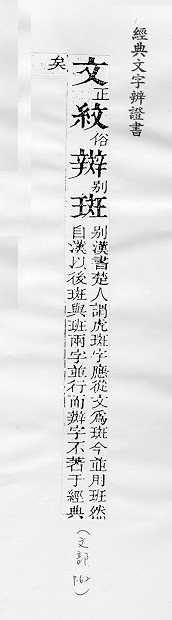 經典文字辨證書
文正紋俗辬别斑别漢書楚人謂虎斑字應從文爲斑今並用班然
自漢以後斑與班兩字並行而辬字不著于經典
矣
(文部